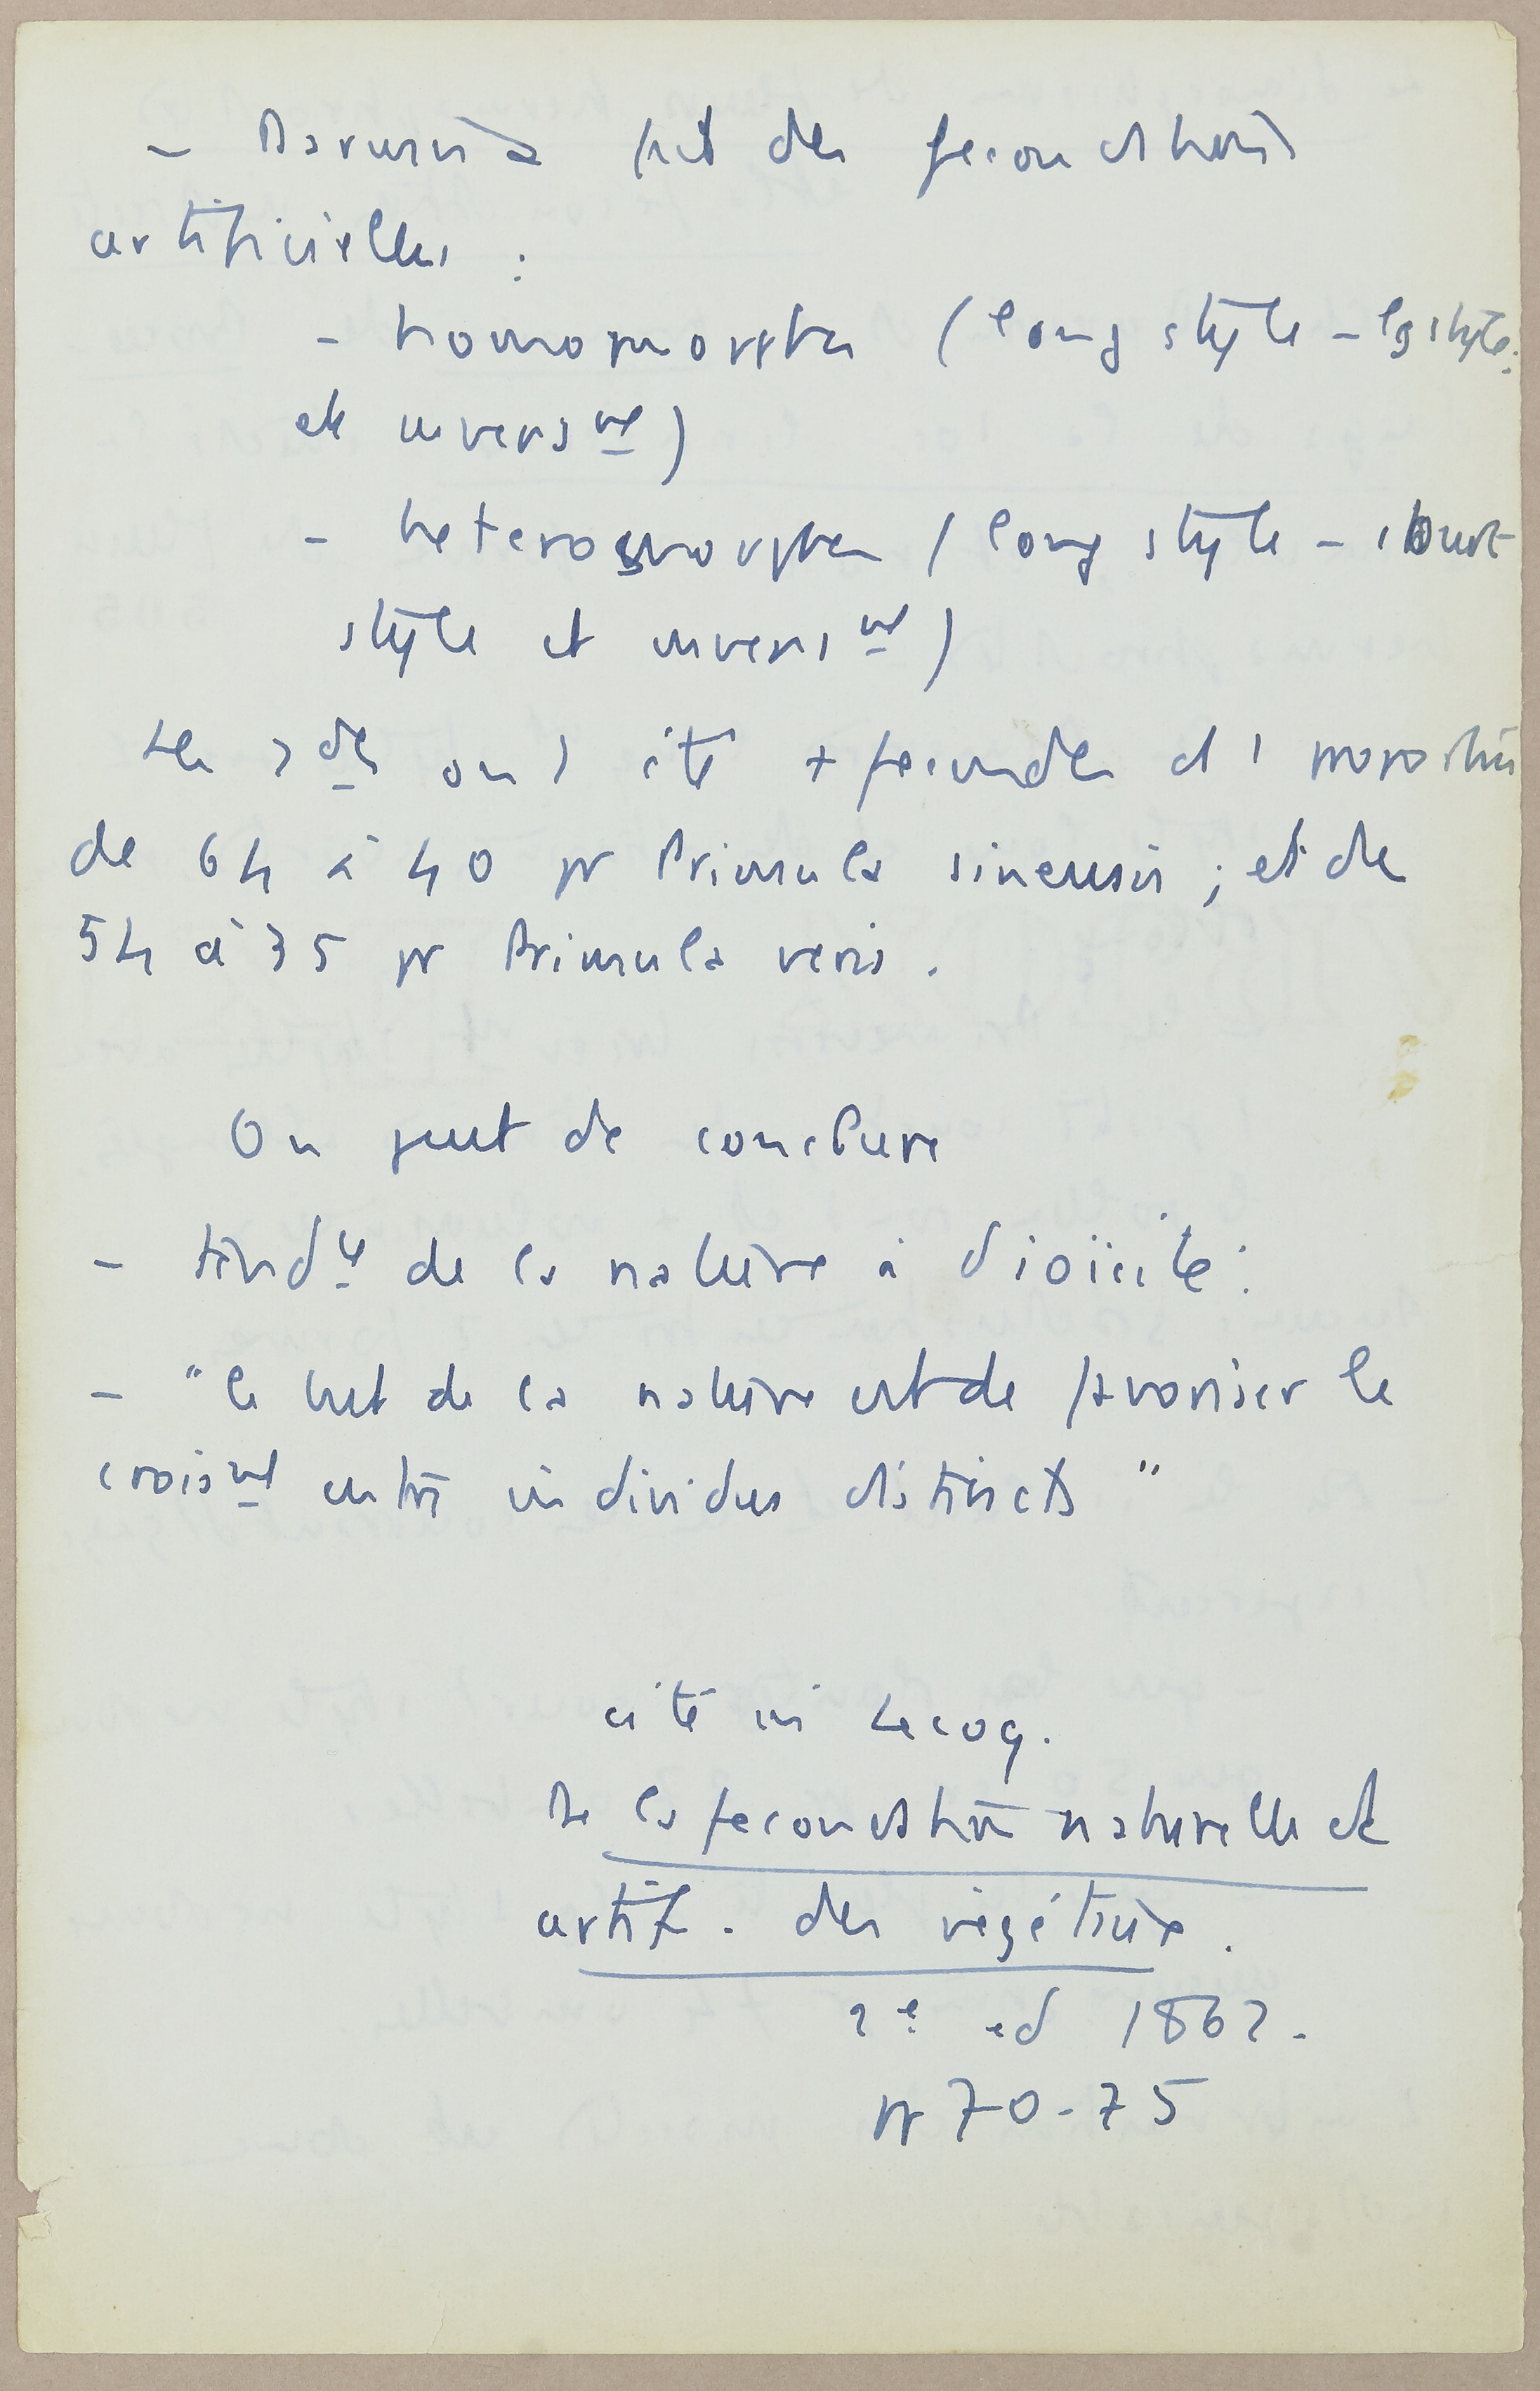 - Darwin a fait des fécondations
artificielles :
- homomorphes (long style - lg style
et inversmt)
- hétéromorphes (long style - court
style et inversmt)
Les 2des ont été + fécondes ds 1 proportion
de 64 à 40 pr Primula sinensis ; et de
54 à 35 pr Primula veris.
On peut de conclure
- tendce de la nature à dioïcité :
- "le but de la nature est de favoriser le
croismt entre individus distincts"
cité in Lecoq.
De la fécondation naturelle et
artif. des végétaux.
2e ed 1862.
pp 70-75